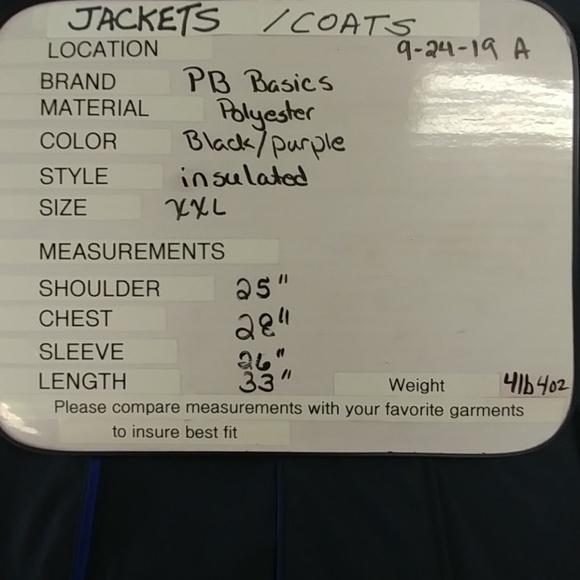 JACKETS / COATS
LOCATION 9-24-19 A
BRAND PB Basics
MATERIAL Polyester
COLOR Black/purple
STYLE insulated
SIZE XXL
MEASUREMENTS
SHOULDER 25"
CHEST 28"
SLEEVE 26"
LENGTH 33" Weight 4lb 4oz
Please compare measurements with your favorite garments
to insure best fit